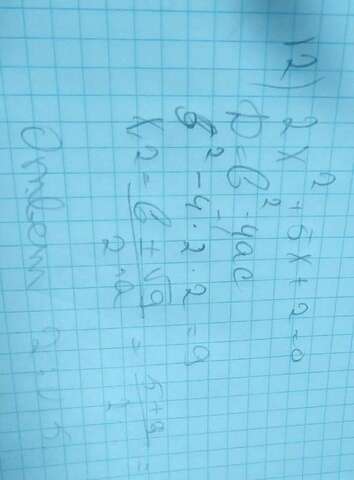 12) 2x² + 5x + 2 = 0
D = b² - 4ac
b² - 4 · 2 · 2 = 9
x2 = (b + √9) / (2 · a) = (5 + 9) / 1 =
Ответ